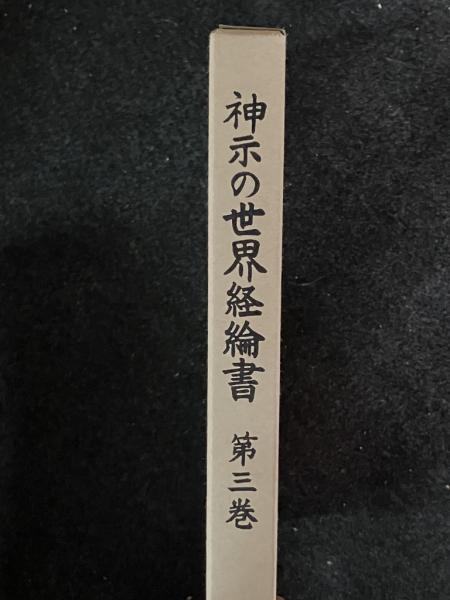 神示の世界経綸書 第三巻